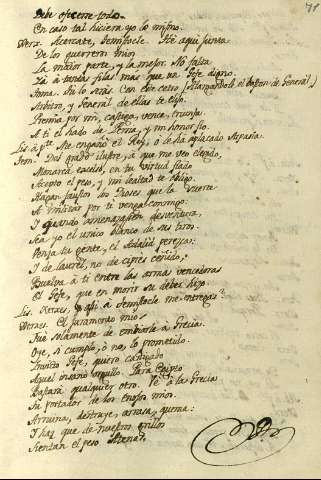 71
Debe ofrecerse todo.
En caso tal hiciera yo lo mismo.
Xerx. Acercate, Temistocle. Ve aqui junta
De los guerreros mios
La maior parte, y la mejor. No falta
Ya à tantas filas mas que un Gefe digno.
Toma: tu lo serás. Con este cetro (Alargandole el baston de General.)
Arbitro, y General de ellas te elijo.
Premia por mi, castiga, vence, triunfa.
A ti el hado de Persia, y mi honor fio.
Lis. à pte. Me engañó el Rey, o le ha aplacado Aspasia.
Tem. Del grado ilustre, à que me veo elegido,
Monarca excelso, en tu virtud fiado
Acepto el peso, y mi lealtad te obligo.
Hagan faustos los Dioses que la suerte
A militar por ti venga conmigo.
Y quando amenazasen desventura,
Sea yo el unico blanco de sus tiros.
Venza tu gente, el Adalid perezca:
Y de laurel, no de ciprés ceñido,
Buelva à ti entre las armas vencedoras
El Gefe, que en morir su deber hizo.
Lis. Xerxes, y asi à Temistocle me entregas?
Xerxes. El juramento mio
Fue solamente de embiarle à Grecia.
Oye, si cumplo, o no, lo prometido.
Invicto Gefe, quiero castigado
Aquel insano orgullo. Para Egipto
Bastará qualquier otro. Ve à la Grecia
Su portador de los enojos mios.
Arruina, destruye, arrasa, quema:
Y haz que de nuestros grillos
Sientan el peso Atenas,